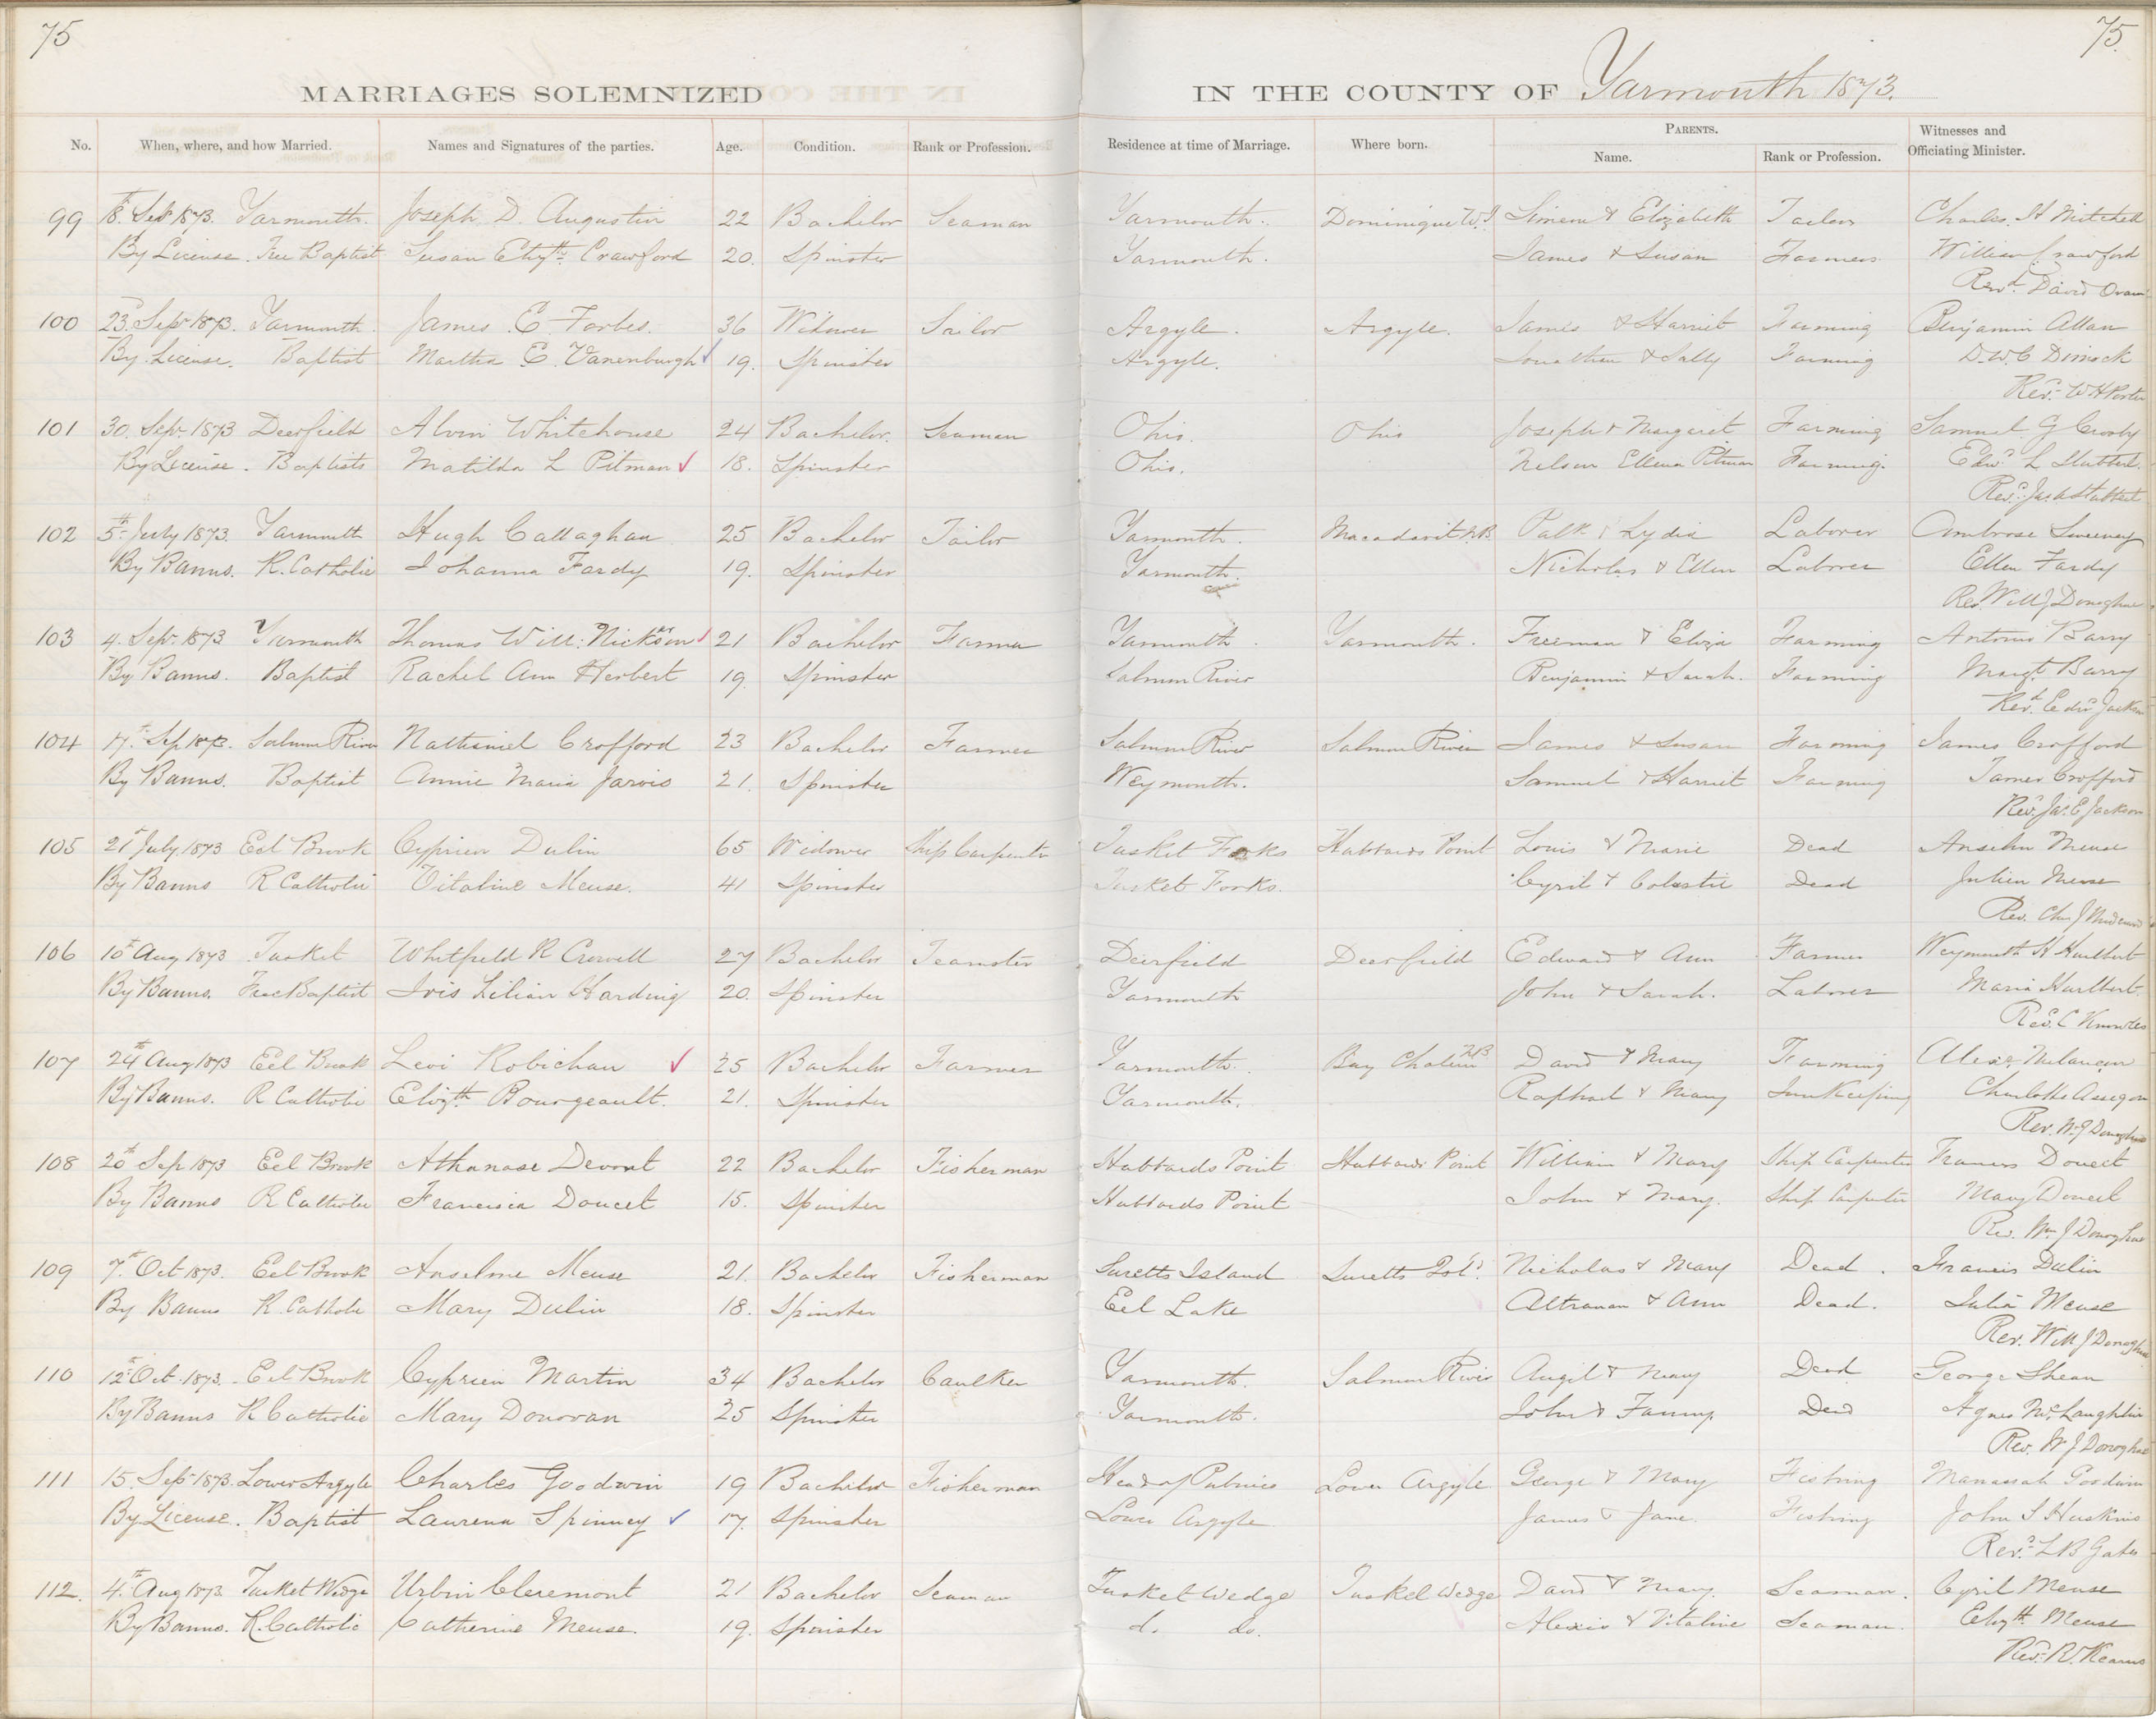 75
75.
MARRIAGES SOLEMNIZED IN THE COUNTY OF Yarmouth 1873.
No. When, where, and how Married. Names and Signatures of the parties. Age. Condition. Rank or Profession. Residence at time of Marriage. Where born. PARENTS. Name. Rank or Profession. Witnesses and Officiating Minister.
99 18th Sep 1873. Yarmouth. Joseph D. Augustin 22 Bachelor Seaman Yarmouth. Dominique W.I. Simeon & Elizabeth Charles H Mitchell
By License. Free Baptist Susan Elizth Crawford 20. Spinster Yarmouth. James & Susan Farmers William Crawford
Revd. David Oram
100 23d. Sepr 1873. Yarmouth. James E. Forbes. 36 Widower Sailor Argyle. Argyle. James & Harriet Farming Benjamin Allan
By License. Baptist Martha E. Vanenburgh 19. Spinster Argyle. Jonathan & Sally Farming D.W.C Dimock
Revd. W H Porter
101 30. Sepr. 1873 Deerfield Alvin Whitehouse 24 Bachelor. Seaman Ohio. Ohio Joseph & Margaret Farming Samuel G Crosby
By License. Baptists Matilda L Pitman 18. Spinster Ohio. Nelson Ellena Pitman Farming. Edwd L
Revd. Jas. A
102 5th July 1873. Yarmouth Hugh Callaghan 25 Bachelor Tailor Yarmouth. N.B. & Lydia Laborer Ambrose Sweeney
By Banns. R. Catholic Johanna Fardy 19. Spinster Yarmouth. Nicholas & Ellen Laborer Ellen Fardy
Rev. Will J Donoghue
103 4. Sepr. 1873 Yarmouth Thomas Will: Nickson 21 Bachelor Farmer Yarmouth. Yarmouth. Freeman & Eliza Farming Antonio Barry
By Banns. Baptist Rachel Ann Herbert 19. Spinster Salmon River Benjamin & Sarah. Farming Margt Barry
Revd. Edwd Jackson
104 17th. Sep 1873. Salmon River Nathaniel Crofford 23 Bachelor Farmer Salmon River Salmon River James & Susan Farming James Crofford
By Banns. Baptist Annie Maria Jarvis 21. Spinster Weymouth. Samuel & Harriet Farming James Crofford
Revd. Jas. E Jackson
105 21st July 1873 Eel Brook Cyprien Dulin 65 Widower Ship Carpenter Tusket Forks Hubbards Point Louis & Marie Dead Anselm Meuse
By Banns R Catholic Vitaline Meuse. 41 Spinster Tusket Forks. Cyril & Colastie Dead Julien Meuse
Rev.
106 10th Aug 1873 Tusket Whitfield R Crowell 27 Bachelor Teamster Deerfield Deerfield Edward & Ann Farmer Weymouth H Hurlbert
By Banns. Free Baptist Iris Lilian Harding 20. Spinster Yarmouth John & Sarah. Laborer Maria Hurlbert.
Revd. C Knowles
107 24th Aug 1873 Eel Brook Levi Robichau 25 Bachelor Farmer Yarmouth. Bay Chaleur NB David & Mary Farming Alexr. Melancon
By Banns. R Catholic Elizth. Bourgeault. 21. Spinster Yarmouth. Raphael & Mary InnKeeping Charlotte
Rev. W J Donoghue
108 20th Sep 1873 Eel Brook Athanase Devout 22 Bachelor Fisherman Hubbards Point Hubbards Point William & Mary Ship Carpenter Frances Doucet
By Banns R Catholic Francisca Doucet 15. Spinster Hubbards Point John & Mary. Ship Carpenter Mary Doucet
Rev. Wm J Donoghue
109 7th. Oct 1873. Eel Brook Anselme Meuse 21. Bachelor Fisherman Suretts Island Suretts Isld. Nicholas & Mary Dead. Francis Dulin
By Banns R. Catholic Mary Dulin 18. Spinster Eel Lake & Ann Dead. Julia Meuse
Rev. Will J Donoghue
110 12th Oct. 1873. Eel Brook Cyprien Martin 34 Bachelor Caulker Yarmouth. Salmon River & Mary Dead George Shean
By Banns R Catholic Mary Donovan 25 Spinster Yarmouth. John & Fanny. Dead Agnes McLaughlin
Rev. W J Donoghue
111 15. Sepr 1873. Lower Argyle Charles Goodwin 19 Bachelor Fisherman Head of Pubnico Lower Argyle George & Mary Fishing Manassah Goodwin
By License. Baptist Laurena Spinney 17. Spinster Lower Argyle James & Jane. Fishing John S Huskins
Revd. L B Gates
112. 4th. Aug 1873 Tusket Wedge Urbin Cleremont 21 Bachelor Seaman Tusket Wedge Tusket Wedge David & Mary. Seaman. Cyril Meuse
By Banns. R. Catholic Catherine Meuse. 19. Spinster do. do. Alexis & Vitaline Seaman. Elizth Meuse
Revd. R. Kearns